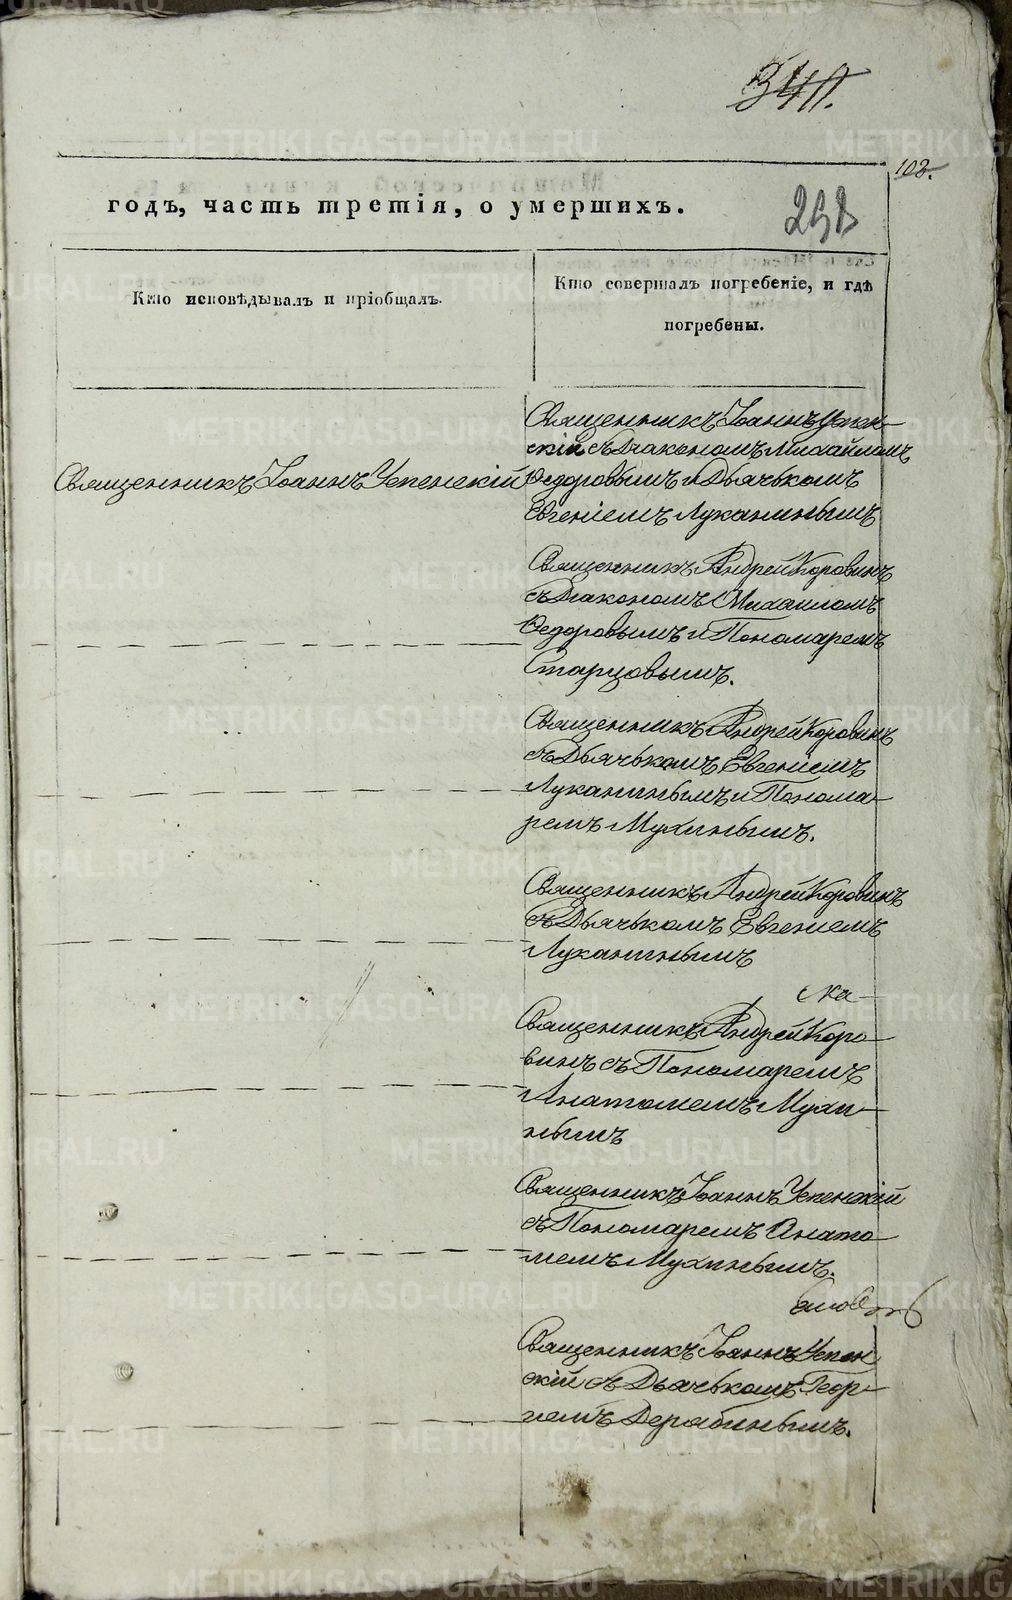 340.
103.
годъ, часть третія, о умершихъ.
Кто исповѣдывалъ и пріобщалъ.
Кто совершалъ погребеніе, и гдѣ
погребены.
Священникъ Іоаннъ Успенскій
Священникъ Іоаннъ Успен-
скій съ Діакономъ Михайломъ
Ѳедоровымъ и Дьячькомъ
Евгеніемъ Луканинымъ
Священникъ Андрей Коровинъ
съ Діакономъ Михаиломъ
Ѳедоровымъ и Пономаремъ
Старцовымъ.
Священникъ Андрей Коровинъ
съ Дьячькомъ Евгеніемъ
Луканинымъ и Понома-
ремъ Мухинымъ.
Священникъ Андрей Коровинъ
съ Дьячькомъ Евгеніемъ
Луканинымъ
Священникъ Андрей Коро-
винъ съ Пономаремъ
Анатолiемъ Мухи-
нымъ
Священникъ Іоаннъ Успенскій
съ Пономаремъ Анато-
лiемъ Мухинымъ.
Священникъ Іоаннъ Успен
скій съ Дьячькомъ Геор-
гіемъ Дерябинымъ.
METRIKI.GASO-URAL.RU